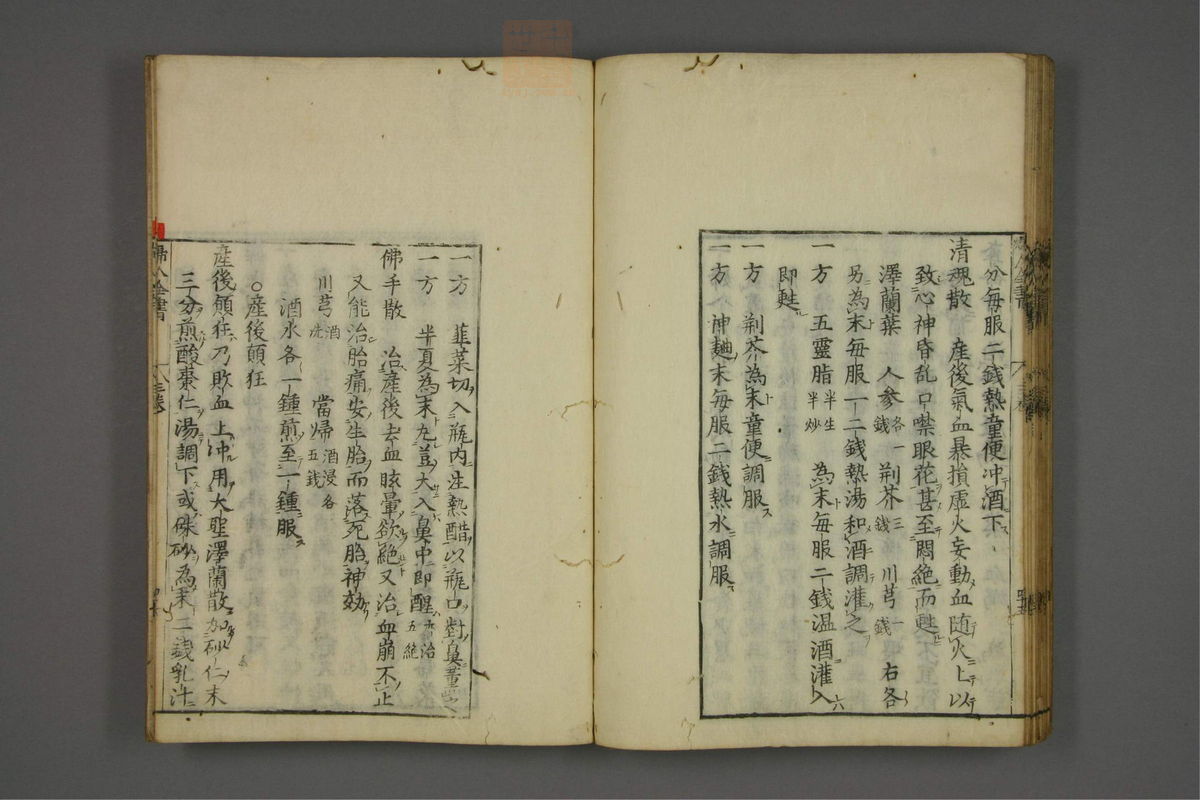 分每服二錢熱童便冲酒下
清魂散 産後氣血暴損虛火妄動血随火上以
致心神昏乱口噤眼花甚至悶絕而甦
澤蘭葉 人参各一錢 荆芥三錢 川芎一錢 右各
另為末每服一二錢熱湯和酒調灌之
一方 五靈脂半生半炒 為末每服二錢温酒灌入
即甦
一方 荆芥為末童便調服
一方 神麯末每服二錢熱水調服
一方 韮菜切入瓶内注熱醋以瓶口對鼻薫之
一方 半夏為末丸豆大入鼻中即醒亦治五絕
佛手散 治産後去血眩暈欲絕又治血崩不止
又能治胎痛安生胎而落死胎神効
川芎酒洗 當歸酒浸各五錢
酒水各一鍾煎至一鍾服
○産後顛狂
産後顛狂乃敗血上冲用大聖澤蘭散加砂仁末
三分煎酸棗仁湯調下或硃砂為末二錢乳汁
婦人全書
三卷